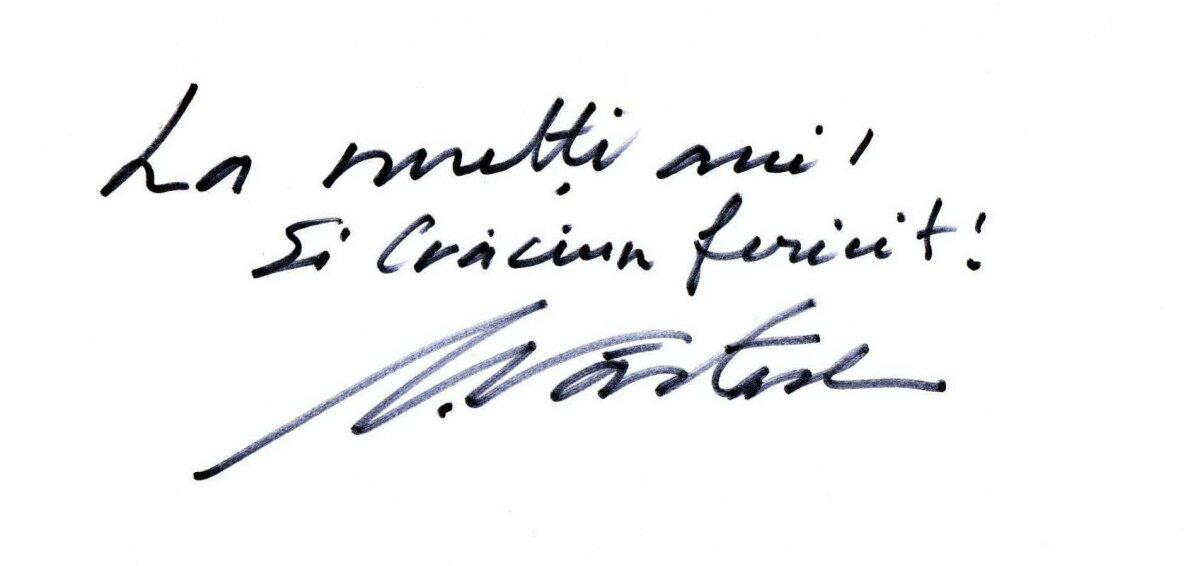 La mulți ani!
Si Crăciun fericit!
A. Năstase